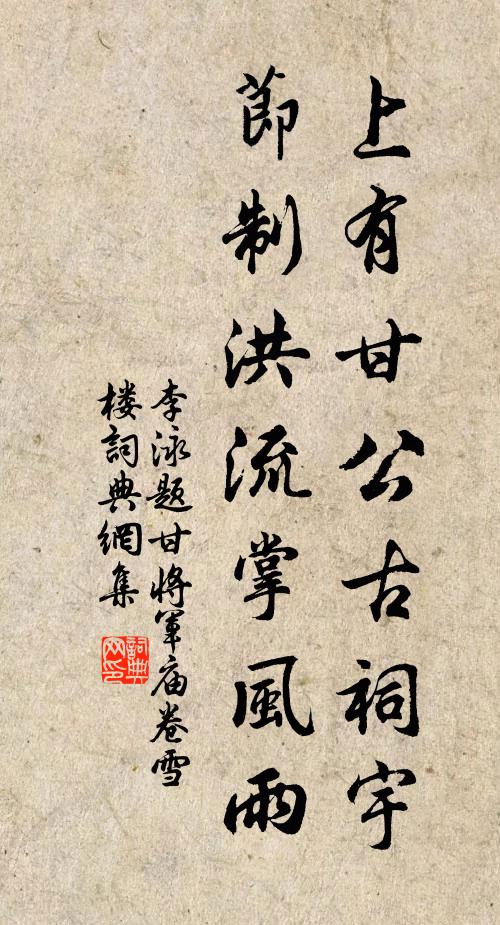 上有甘公古祠宇
節制洪流掌風雨
李泳題甘將軍庙卷雪
楼詞典網集
詞典
网印